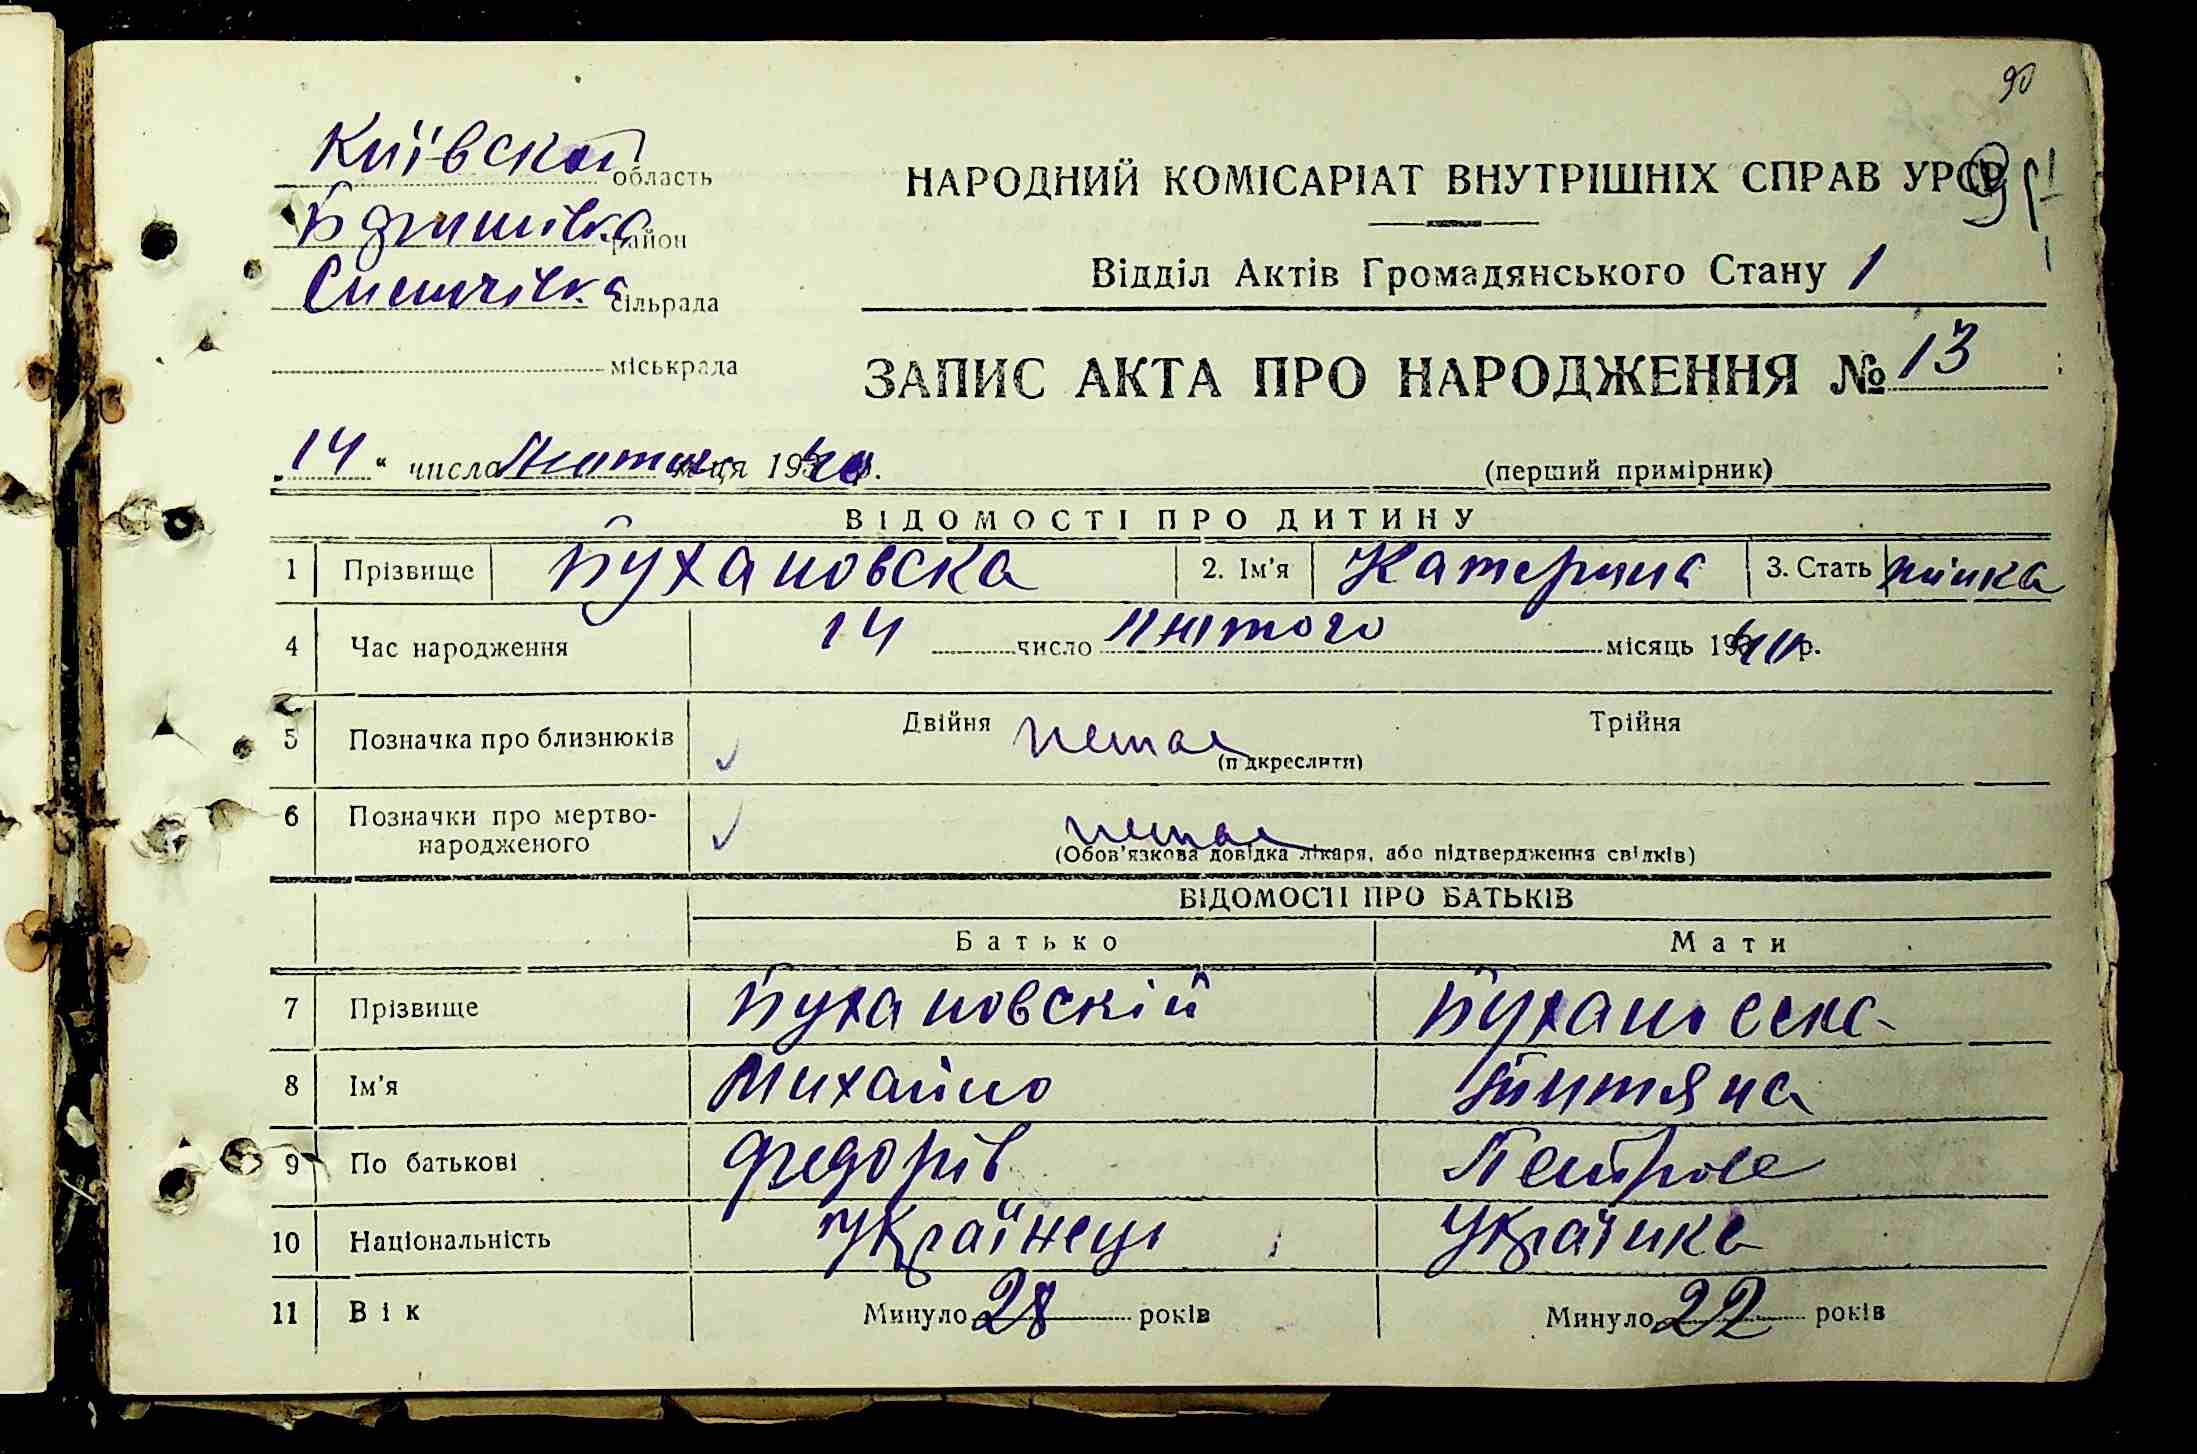 90
Київской область
район
сільрада
міськрада
НАРОДНИЙ КОМІСАРІАТ ВНУТРІШНІХ СПРАВ УРСР
Відділ Актів Громадянського Стану 1
ЗАПИС АКТА ПРО НАРОДЖЕННЯ № 13
„14" числа м-ця 1940 р.
(перший примірник)
ВІДОМОСТІ ПРО ДИТИНУ
1 Прізвище Бухановска 2. Ім'я Катерина 3. Стать жінка
4 Час народження 14 число лютого місяць 1940 р.
5 Позначка про близнюків Двійня немає Трійня
(підкреслити)
6 Позначки про мертво-
народженого немає
(Обов'язкова довідка лікаря, або підтвердження свідків)
ВІДОМОСТІ ПРО БАТЬКІВ
Батько Мати
7 Прізвище Бухановскій Бухановска
8 Ім'я Михайло
9 По батькові Федорів Петров
10 Національність Українець Українка
11 Вік Минуло 28 років Минуло 22 років